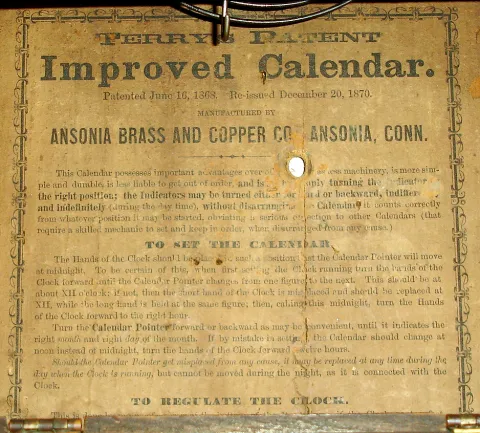 TERRY'S PATENT
Improved Calendar.
Patented June 16, 1868. Re-issued December 20, 1870.
MANUFACTURED BY
ANSONIA BRASS AND COPPER CO., ANSONIA, CONN.
This Calendar possesses important advantages over machinery, is more sim-
ple and durable, is less liable to get out of order, and is simply turning the indicator
the right position; the Indicators may be turned either for ard or backward,
and indefinitely (during the day time), without disarranging the Calendar it counts correctly
from whatever position it may be started, obviating a serious objection to other Calendars (that
require a skilled mechanic to set and keep in order, when disarranged from any cause.)
TO SET THE CALENDAR.
The Hands of the Clock should be placed in such a position that the Calendar Pointer will move
at midnight. To be certain of this, when first setting the Clock running turn the hands of the
Clock forward until the Calendar Pointer changes from one figure to the next. This should be at
about XII o'clock; if not, then the hour hand of the Clock is misplaced and should be replaced at
XII, while the long hand is held at the same figure; then, calling this midnight, turn the Hands
of the Clock forward to the right hour.
Turn the Calendar Pointer forward or backward as may be convenient, until it indicates the
right month and right day of the month. If by mistake in setting, the Calendar should change at
noon instead of midnight, turn the hands of the Clock forward twelve hours.
Should the Calendar Pointer get misplaced from any cause, it may be replaced at any time during the
day when the Clock is running, but cannot be moved during the night, as it is connected with the
Clock.
TO REGULATE THE CLOCK.
This is